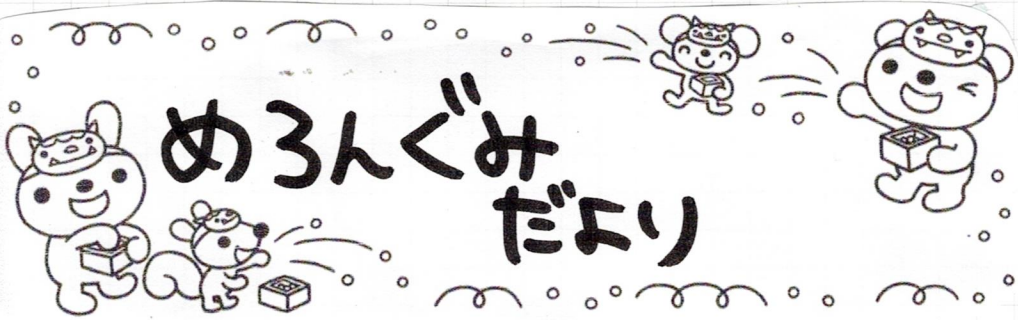 めろんぐみ
だより